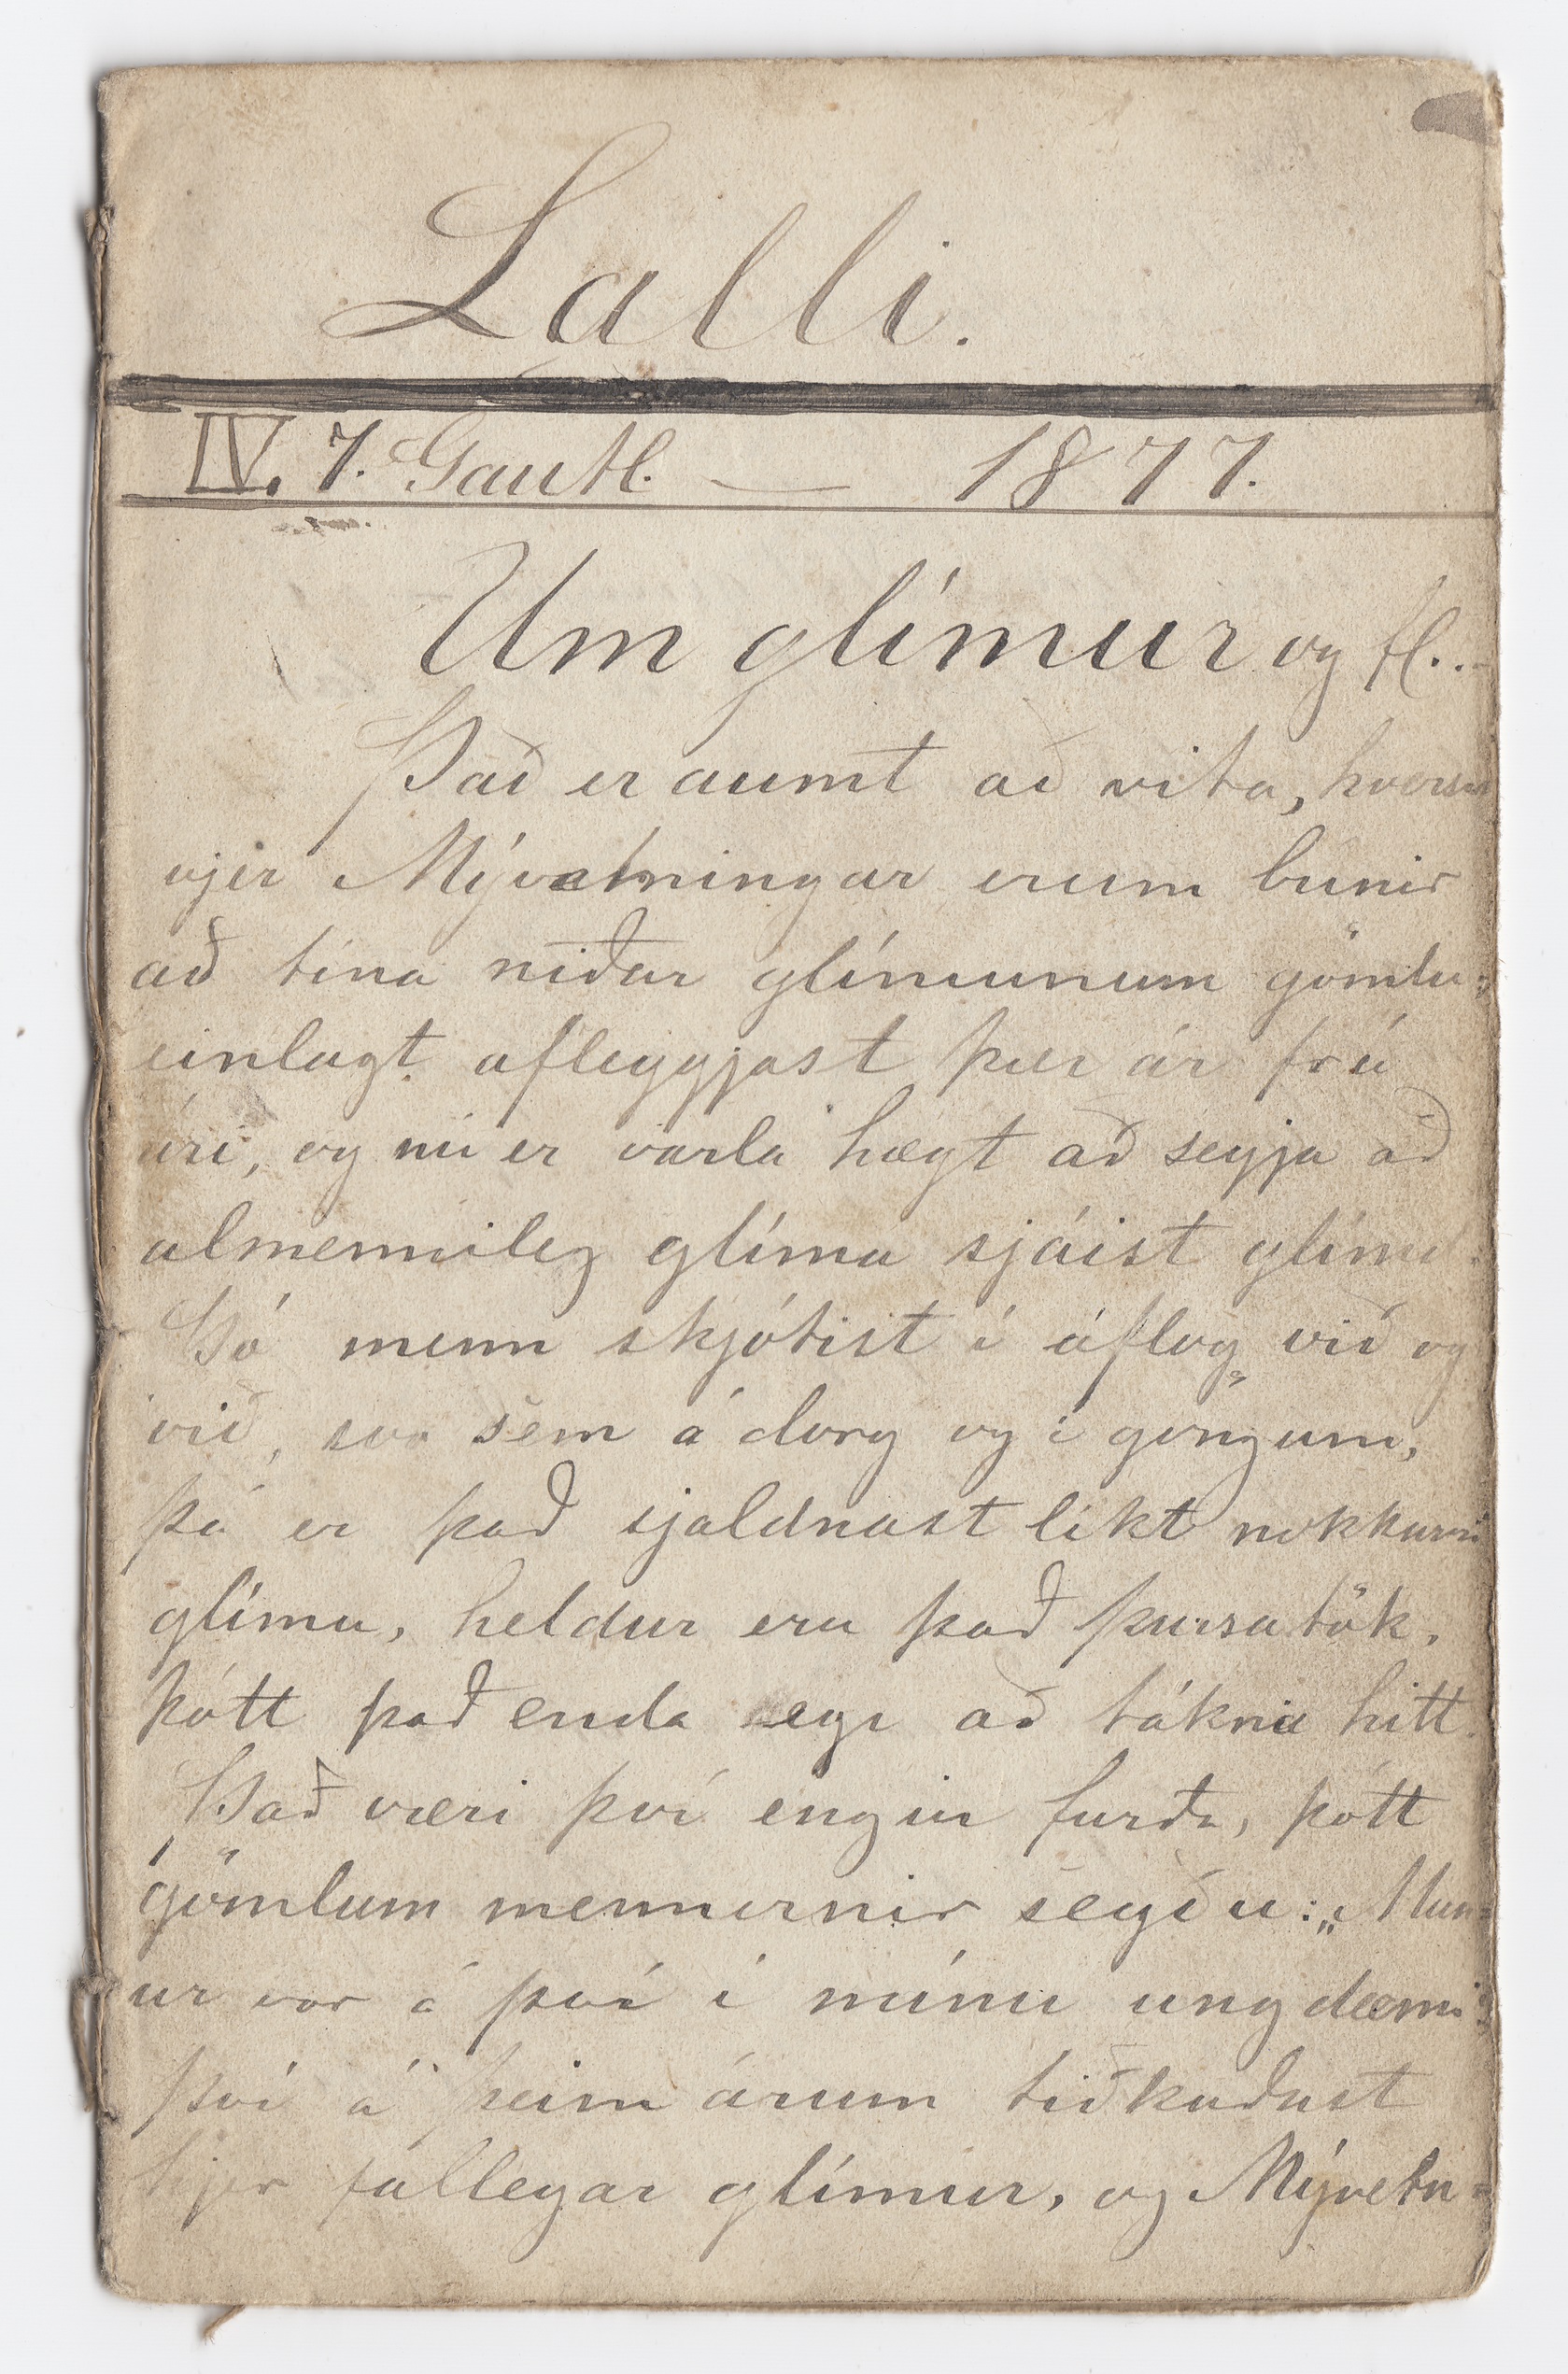 Lalli.
IV. 7. Gautl. — 1877.
Um glímur og fl..
Það er aumt að vita, hversu
vjer Mývetningar erum búnir
að tína niður glímunum gömlu;
einlagt afleggjast þær ár frá
ári, og nú er varla hægt að segja að
almennileg glíma sjáist glímd.
Þó menn skjótist í áflog við og
við, svo sem á dorg og í göngum,
þá er það sjaldnast líkt nokkurri
glímu, heldur eru það þursatök,
þótt það enda eigi að tákna hitt.
Það væri því engin furða, þótt
gömlum mennirnir segðu: „Mun=
ur var á því í mínu ungdæmi
því á þeim árum tiðkuðust
hjer fallegar glímur, og Mývetn=